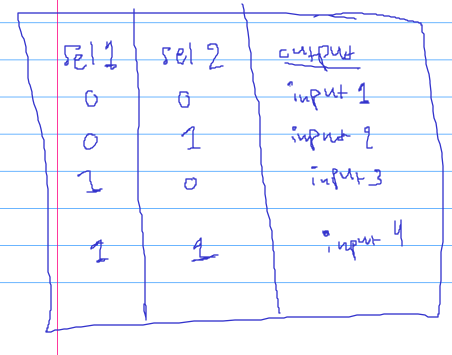 sel 1 sel 2 output
0 0 input 1
0 1 input 2
1 0 input 3
1 1 input 4